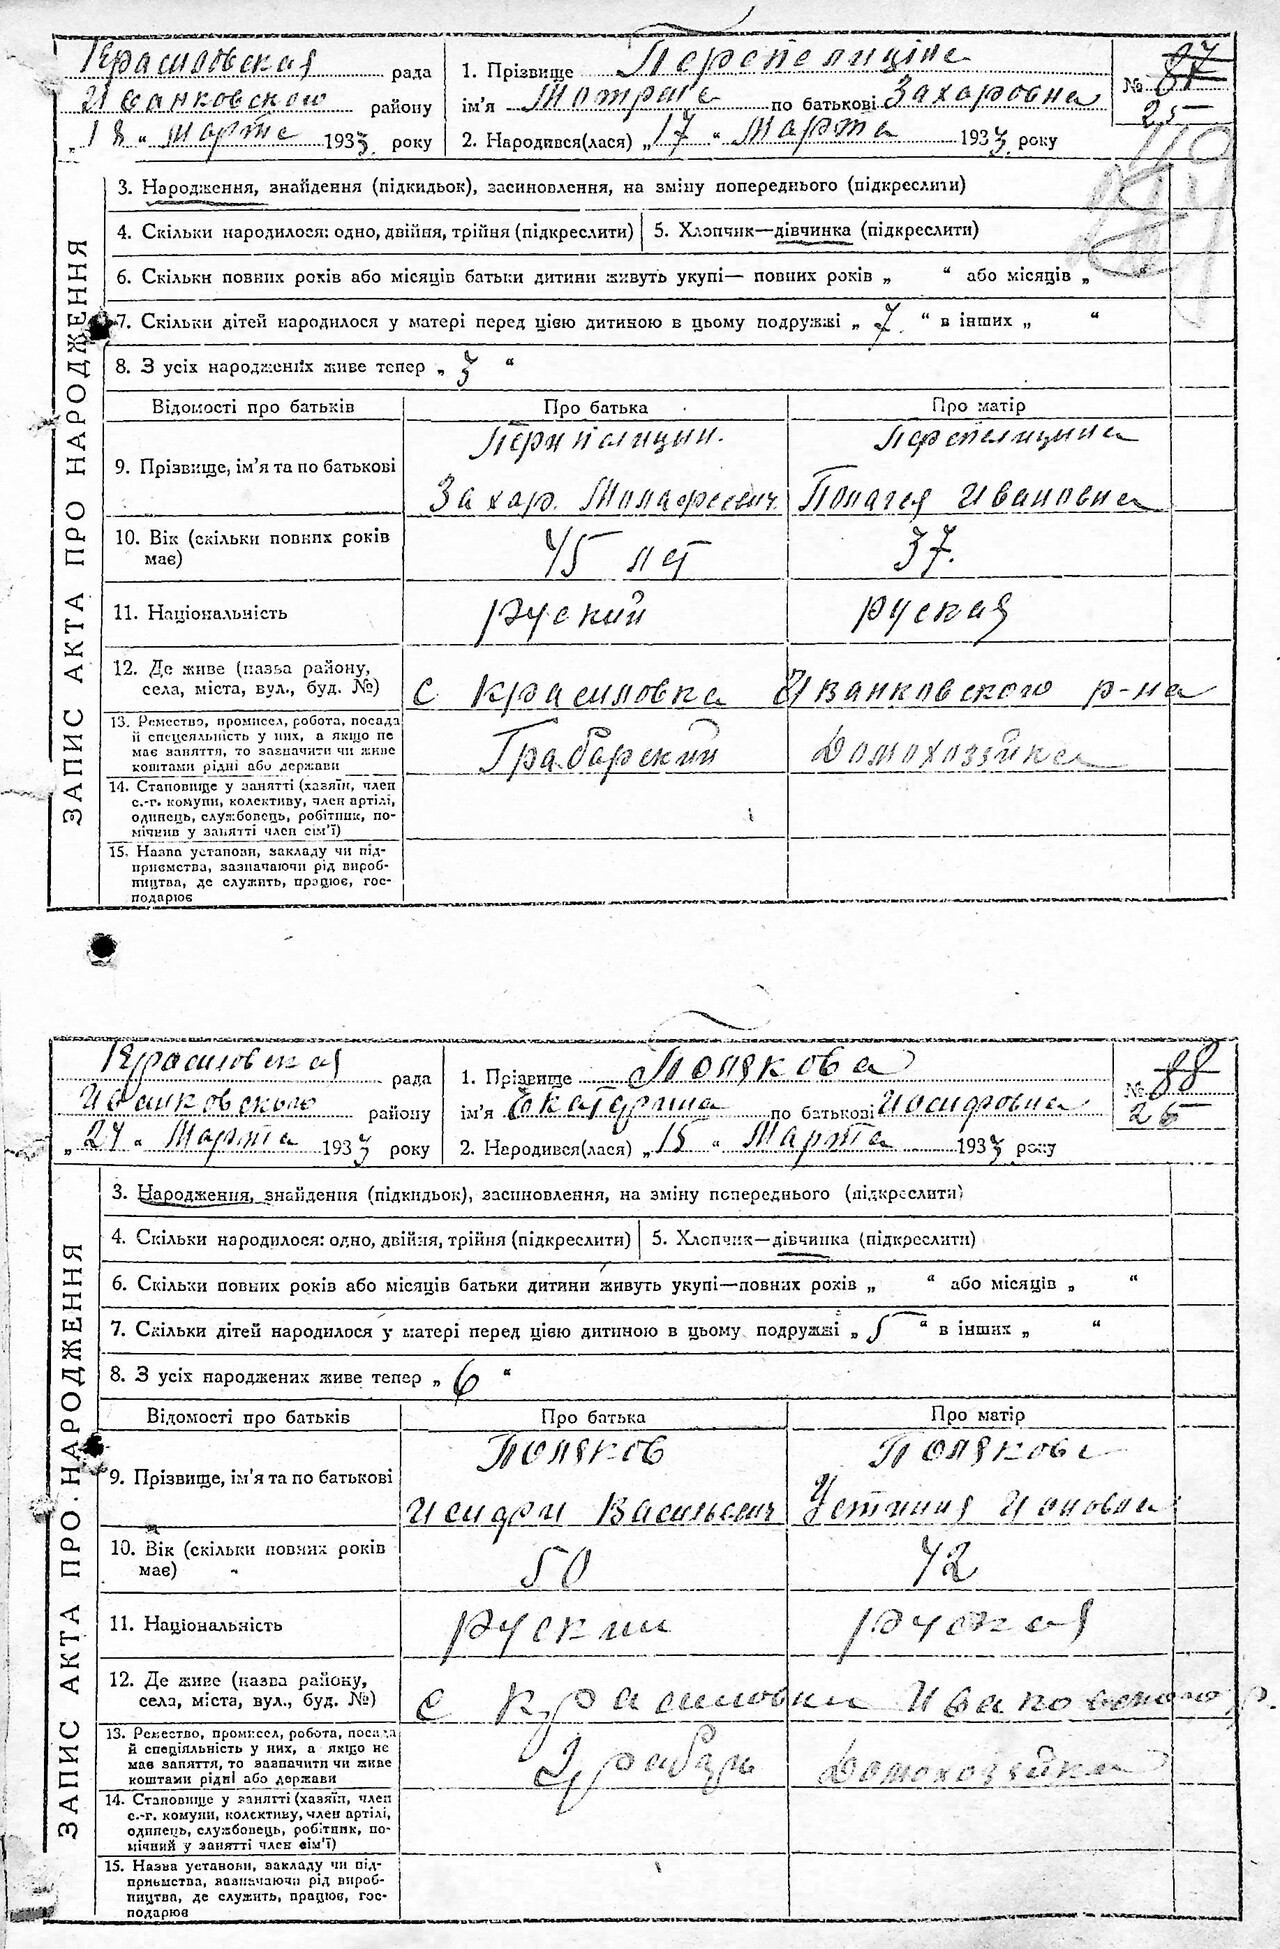 Красиловская рада
Иванковского району
„18“ Марта 1933 року
1. Прізвище Перепелицина
ім'я Мотрона по батькові Захаровна
2. Народився(лася) „17“ Марта 1933 року
№ 87
25
ЗАПИС АКТА ПРО НАРОДЖЕННЯ
3. Народження, знайдення (підкидьок), засиновлення, на зміну попереднього (підкреслити)
4. Скільки народилося: одно, двійня, трійня (підкреслити) 5. Хлопчик—дівчинка (підкреслити)
6. Скільки повних років або місяців батьки дитини живуть укупі— повних років „ “ або місяців „ “
7. Скільки дітей народилося у матері перед цією дитиною в цьому подружжі „7“ в інших „ “
8. З усіх народжених живе тепер „3“
Відомості про батьків Про батька Про матір
9. Прізвище, ім'я та по батькові
Перипелицин. Перепелицина
Захар. Пелагея Ивановна
10. Вік (скільки повних років має)
45 лет 37.
11. Національність руский руская
12. Де живе (назва району, села, міста, вул., буд. №)
с Красиловка Иванковского р-на
13. Ремество, промисел, робота, посада
й спеціяльність у них, а якщо не
має заняття, то зазначити чи живе
коштами рідні або держави
Грабарский Домохозяйка
14. Становище у занятті (хазяїн, член
с.-г. комуни, колективу, член артілі,
одинець, службовець, робітник, по-
мічник у занятті член сім'ї)
15. Назва установи, закладу чи під-
приємства, зазначаючи рід вироб-
ництва, де служить, працює, гос-
подарює
Красиловская рада
Иванковского району
„24“ Марта 1933 року
1. Прізвище Полякова
ім'я Екатерина по батькові Иосифовна
2. Народився(лася) „15“ Марта 1933 року
№ 88
26
ЗАПИС АКТА ПРО НАРОДЖЕННЯ
3. Народження, знайдення (підкидьок), засиновлення, на зміну попереднього (підкреслити)
4. Скільки народилося: одно, двійня, трійня (підкреслити) 5. Хлопчик—дівчинка (підкреслити)
6. Скільки повних років або місяців батьки дитини живуть укупі—повних років „ “ або місяців „ “
7. Скільки дітей народилося у матері перед цією дитиною в цьому подружжі „5“ в інших „ “
8. З усіх народжених живе тепер „6“
Відомості про батьків Про батька Про матір
9. Прізвище, ім'я та по батькові
Поляков Полякова
Васильевич Устиния Ионовна
10. Вік (скільки повних років має)
50 42
11. Національність руский руская
12. Де живе (назва району, села, міста, вул., буд. №)
с Красиловки Иваковского р.
13. Ремество, промисел, робота, посада
й спеціяльність у них, а якщо не
має заняття, то зазначити чи живе
коштами рідні або держави
Грабарь Домохозяйка
14. Становище у занятті (хазяїн, член
с.-г. комуни, колективу, член артілі,
одинець, службовець, робітник, по-
мічний у занятті член сім'ї)
15. Назва установи, закладу чи під-
приємства, зазначаючи рід вироб-
ництва, де служить, працює, гос-
подарює